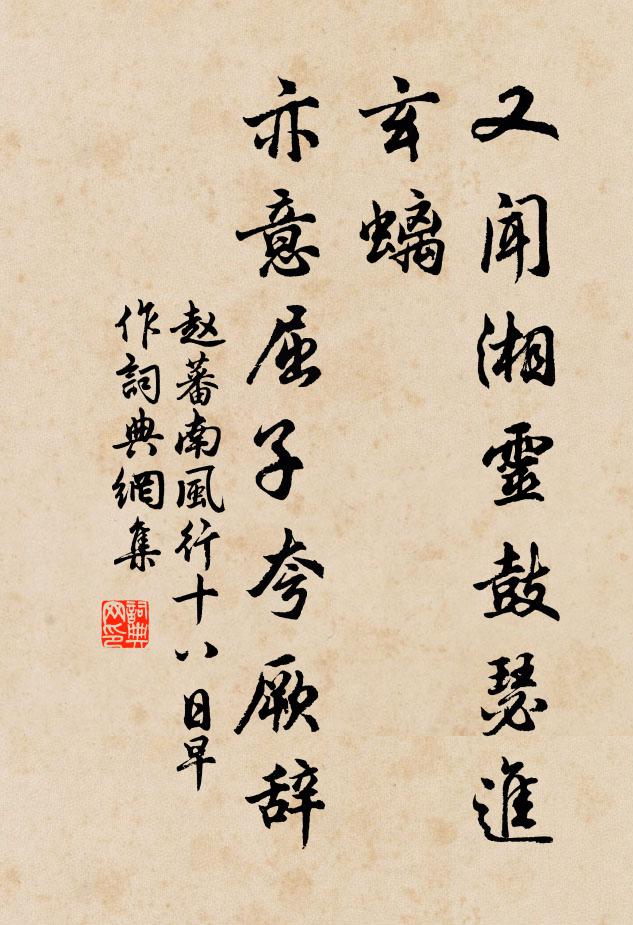 又闻湘靈鼓瑟進
玄螭
亦意屈子夸厥辞
赵蕃南風行十八日早
作詞典網集
詞典
网印